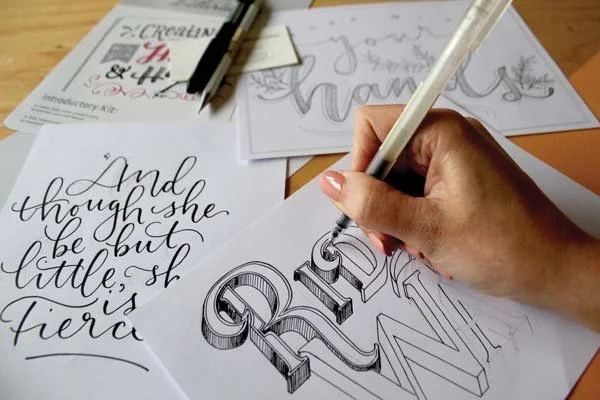 CREATIN
&
Introductory Kit:
your
hands
"And
though she
be but
little, sh
is
fierc
RID
Wi